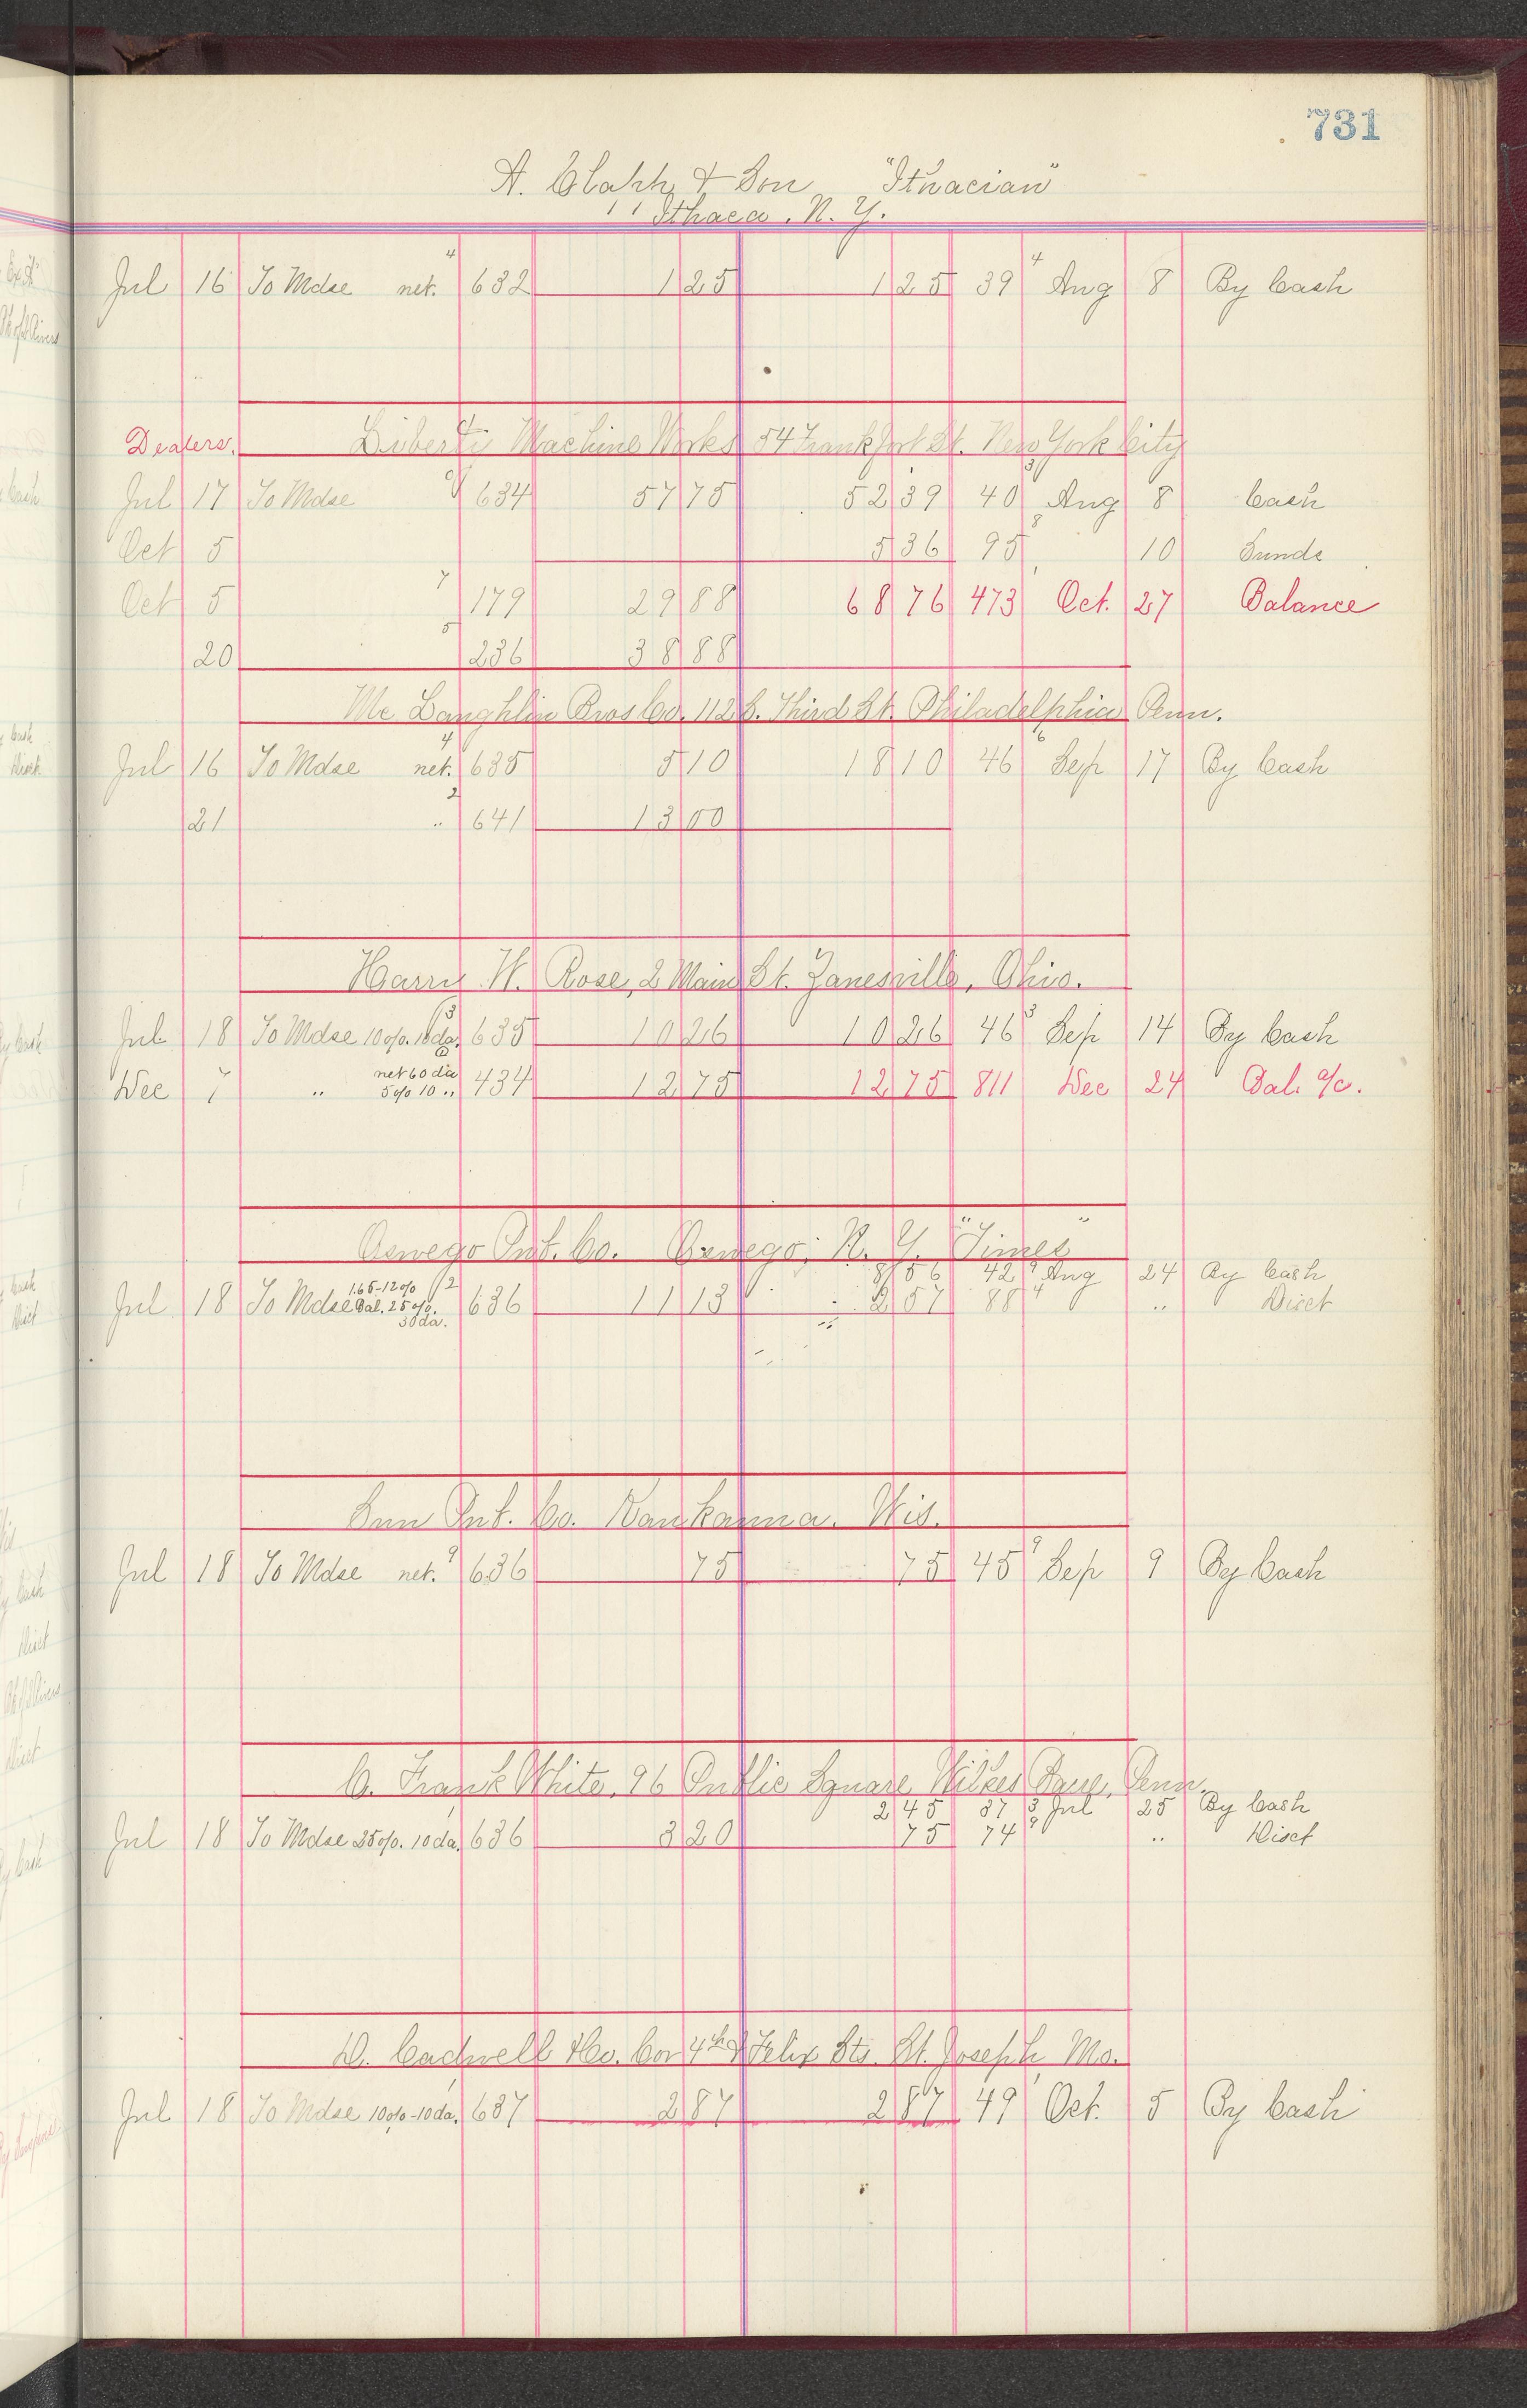 731
A. Clapp & Son "Ithacian"
Ithaca, N. Y.
Jul 16 To Mdse net. 4 632 1 25 1 25 39 4 Aug 8 By Cash
Dealers. Liberty Machine Works 54 Frankfort St. New York City
Jul 17 To Mdse 634 57 75 52 39 40 3 Aug 8 Cash
Oct 5 5 36 95 8 10 Sunds
Oct 5 7 179 29 88 68 76 473 Oct. 27 Balance
20 5 236 38 88
Mc Laughlin Bros Co. 112 S. Third St. Philadelphia Penn.
Jul 16 To Mdse net. 4 635 5 10 18 10 46 6 Sep 17 By Cash
21 " 2 641 13 00
Harry H. Rose, 2 Main St. Zanesville, Ohio.
Jul 18 To Mdse 10%. 10 da. 3 635 10 26 10 26 46 3 Sep 14 By Cash
Dec 7 " net 60 da 5% 10 " 434 12 75 12 75 811 Dec 24 Bal. a/c.
Oswego Pub. Co. Oswego, N. Y. "Times"
8 56 42 9 Aug 24 By Cash
Jul 18 To Mdse 1.65-12% Bal. 25%. 30 da. 12 636 11 13 2 57 88 4 " Disct
Sun Pub. Co. Kaukauna. Wis.
Jul 18 To Mdse net. 9 636 75 75 45 9 Sep 9 By Cash
C. Frank White, 96 Public Square, Wilkes Barre, Penn.
2 45 37 3 Jul 25 By Cash
Jul 18 To Mdse 25%. 10 da. 636 3 20 75 74 9 " Disct
D. Cadwell & Co. Cor 4th & Felix Sts. St. Joseph, Mo.
Jul 18 To Mdse 10%-10 da. 637 2 87 2 87 49 Oct. 5 By Cash